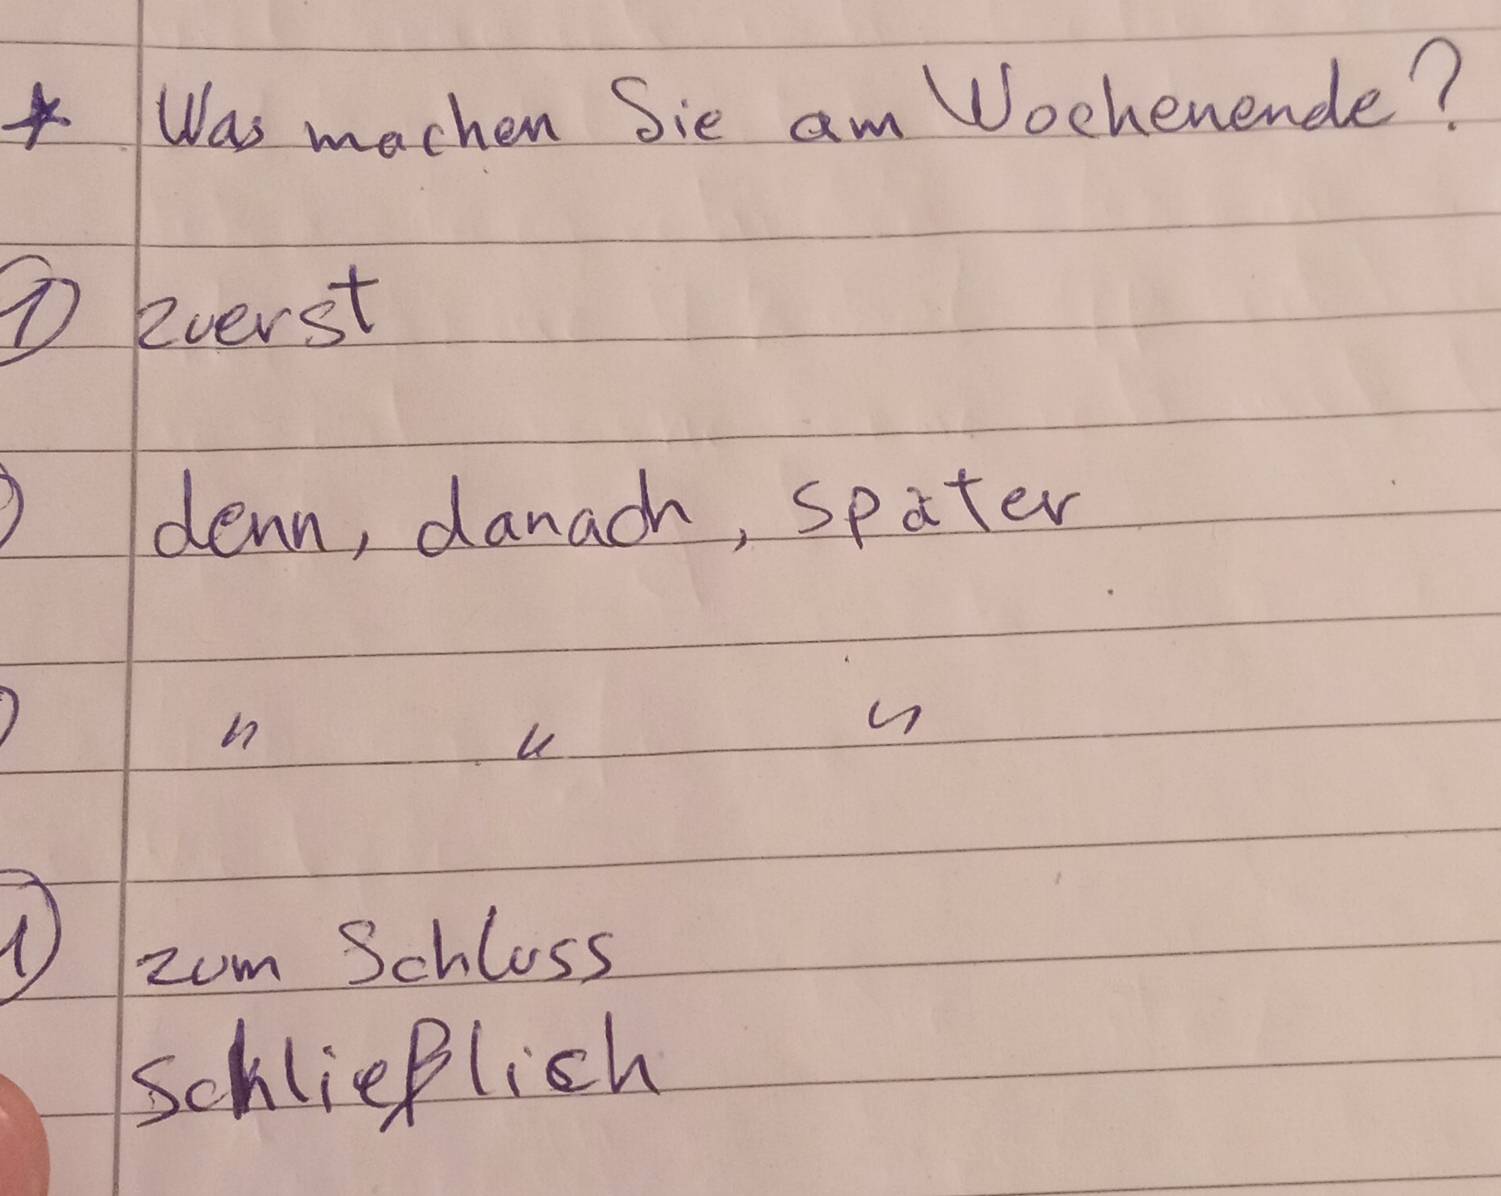 * Was machen Sie am Wochenende?
① zuerst
denn, danach, später
" " "
① zum Schluss
schließlich